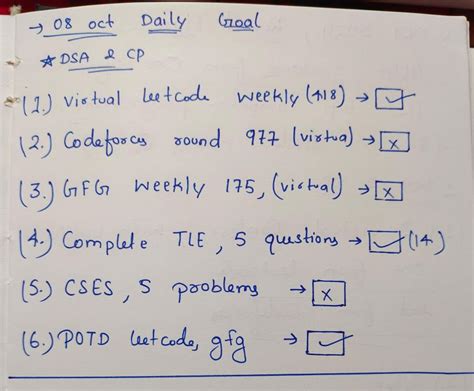 → 08 oct Daily Goal
* DSA & CP
(1.) Virtual leetcode weekly (418) → ✓
(2.) Codeforces round 977 (virtua) → x
(3.) GFG weekly 175, (virtual) → x
(4.) Complete TLE, 5 questions → ✓ (14)
(5.) CSES, 5 problems → x
(6.) POTD leetcode, gfg → ✓